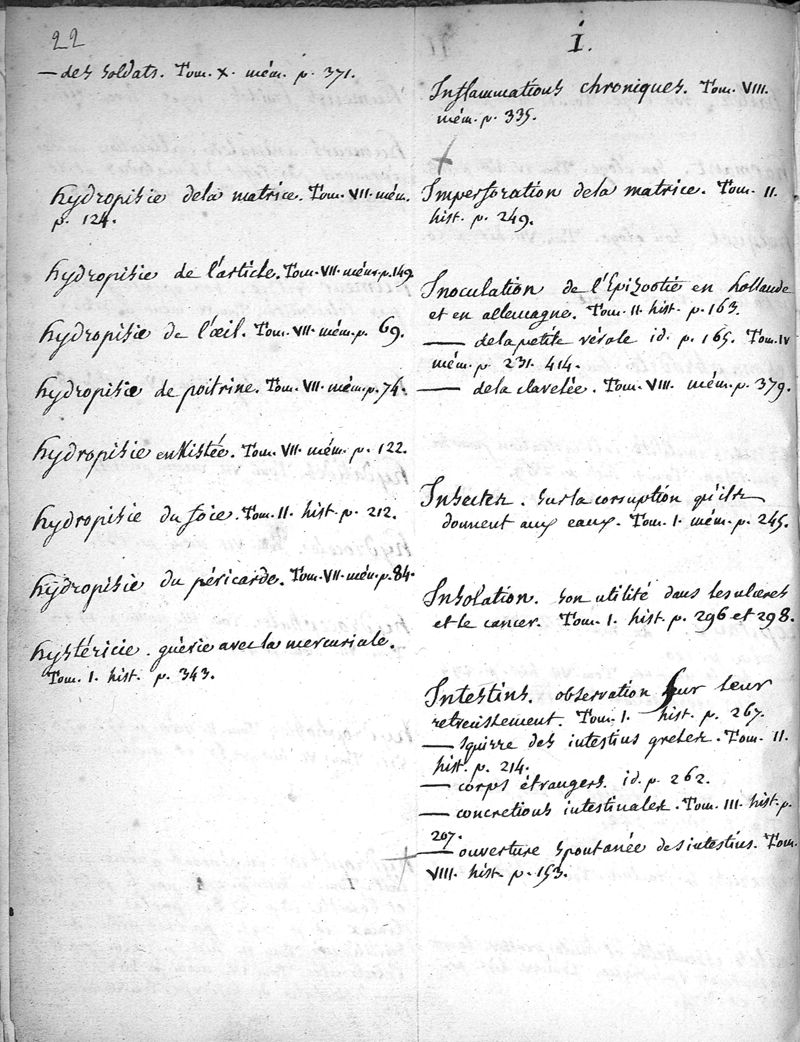 22
— des soldats. Tom. X. mém. p. 371.
hydropisie dela matrice. Tom. VII. mém.
p. 124.
hydropisie de l'article. Tom. VII. mém. p. 149.
hydropisie de l'œil. Tom. VII. mém. p. 69.
hydropisie de poitrine. Tom. VII. mém. p. 74.
hydropisie enkistée. Tom. VII. mém. p. 122.
hydropisie du foie. Tom. II. hist. p. 212.
hydropisie du péricarde. Tom. VII. mém. p. 84.
hystéricie. guérie avec la mercuriale.
Tom. I. hist. p. 343.
i.
Inflammations chroniques. Tom. VIII.
mém. p. 335.
Imperforation dela matrice. Tom. II.
hist. p. 249.
Inoculation de l'Epizootie en hollande
et en allemagne. Tom. II. hist. p. 163.
— dela petite vérole id. p. 165. Tom. IV
mém. p. 231. 414.
— dela clavelée. Tom. VIII. mém. p. 379.
Insectes. sur la corruption qu'ils
donnent aux eaux. Tom. I. mém. p. 245.
Insolation. son utilité dans les ulceres
et le cancer. Tom. I. hist. p. 296 et 298.
Intestins. observation sur leur
retrecissement. Tom. I. hist. p. 267.
— squirre des intestins greles. Tom. II.
hist. p. 214.
— corps étrangers. id. p. 262.
— concretions intestinales. Tom. III. hist. p.
207.
— ouverture spontanée des intestins. Tom.
VIII. hist. p. 153.